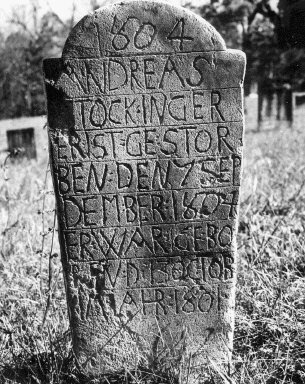 1804
ANDREAS
TOCKINGER
ER IST GESTOR
BEN DEN 7 SEP
DEMBER 1804
ER WAR GEBO
DEN OCTOB
IM JAHR 1801